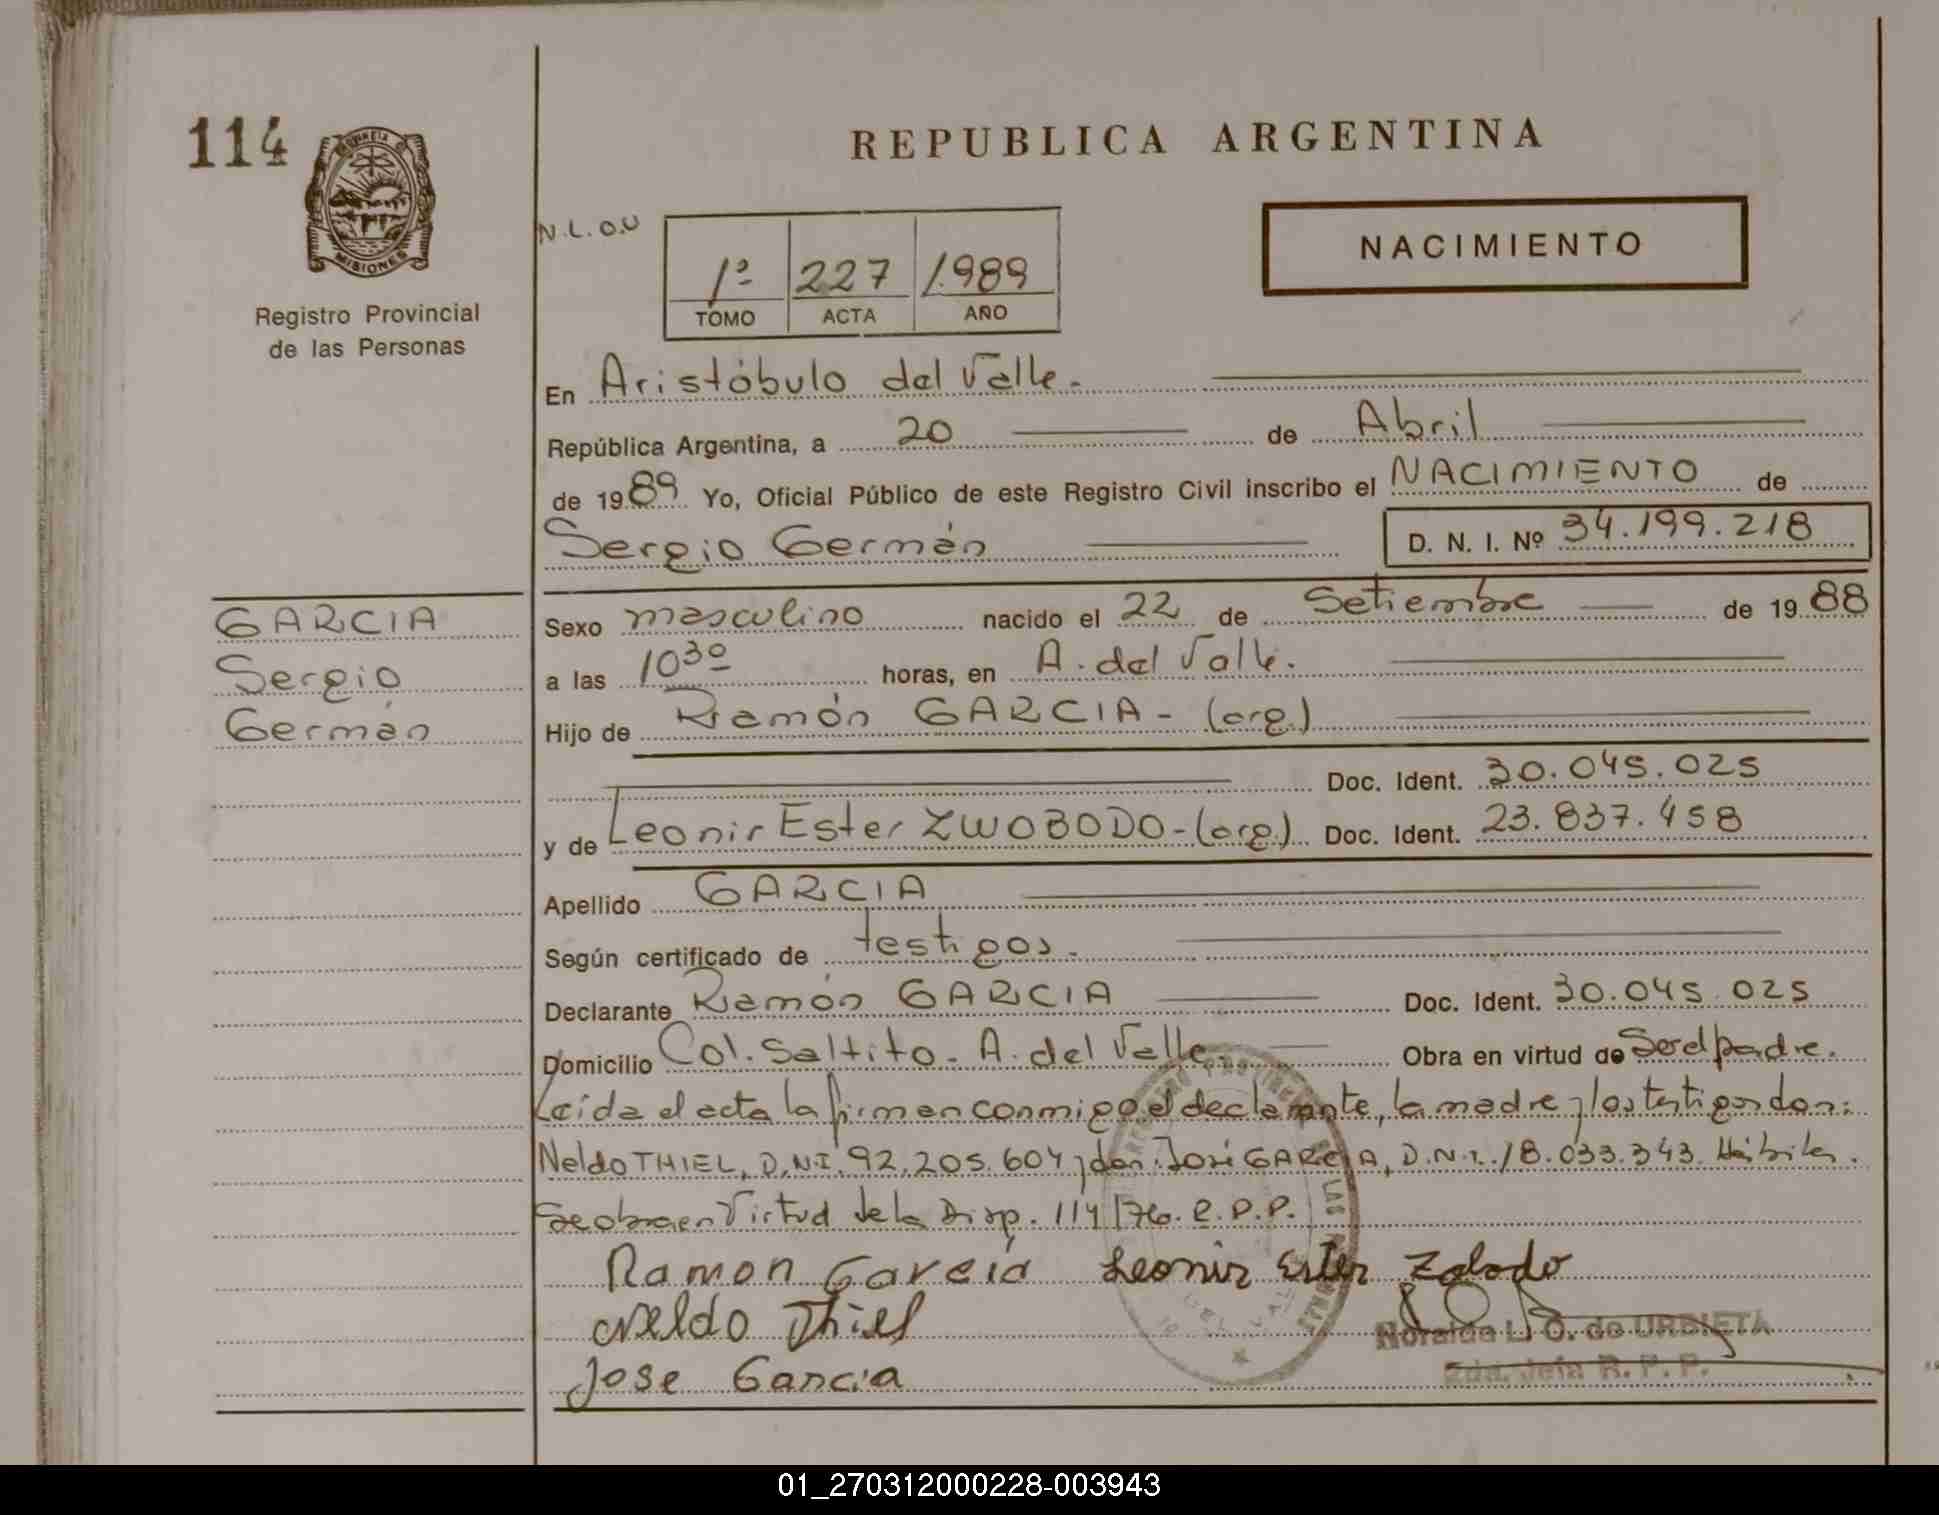 114
PROVINCIA DE
MISIONES
Registro Provincial
de las Personas
REPUBLICA ARGENTINA
N.L.O.U
NACIMIENTO
1º 227 1.989
TOMO ACTA AÑO
En Aristóbulo del Valle.
República Argentina, a 20 de Abril
de 1989 Yo, Oficial Público de este Registro Civil inscribo el NACIMIENTO de
Sergio Germán D. N. I. Nº 34.199.218
GARCIA
Sergio
Germán
Sexo masculino nacido el 22 de Setiembre de 1988
a las 10³⁰ horas, en A. del Valle.
Hijo de Ramón GARCIA - (arg.)
Doc. Ident. 30.045.025
y de Leonir Ester ZWOBODO - (arg.) Doc. Ident. 23.837.458
Apellido GARCIA
Según certificado de testigos.
Declarante Ramón GARCIA Doc. Ident. 30.045.025
Domicilio Col. Saltito - A. del Valle. Obra en virtud de Ser el padre.
Leída el acta la firman conmigo el declarante, la madre y los testigos don:
Neldo THIEL, D.N.I. 92.205.604 y don: José GARCIA, D.N.I. 18.033.343. Hábiles.
Se obra en Virtud de la Disp. 114/76. R.P.P.
Ramon Garcia Leonir Ester Zabodo
Neldo Thiel
Noraida L. O. de URBIETA
2da. Jefa R. P. P.
Jose Garcia
01_270312000228-003943